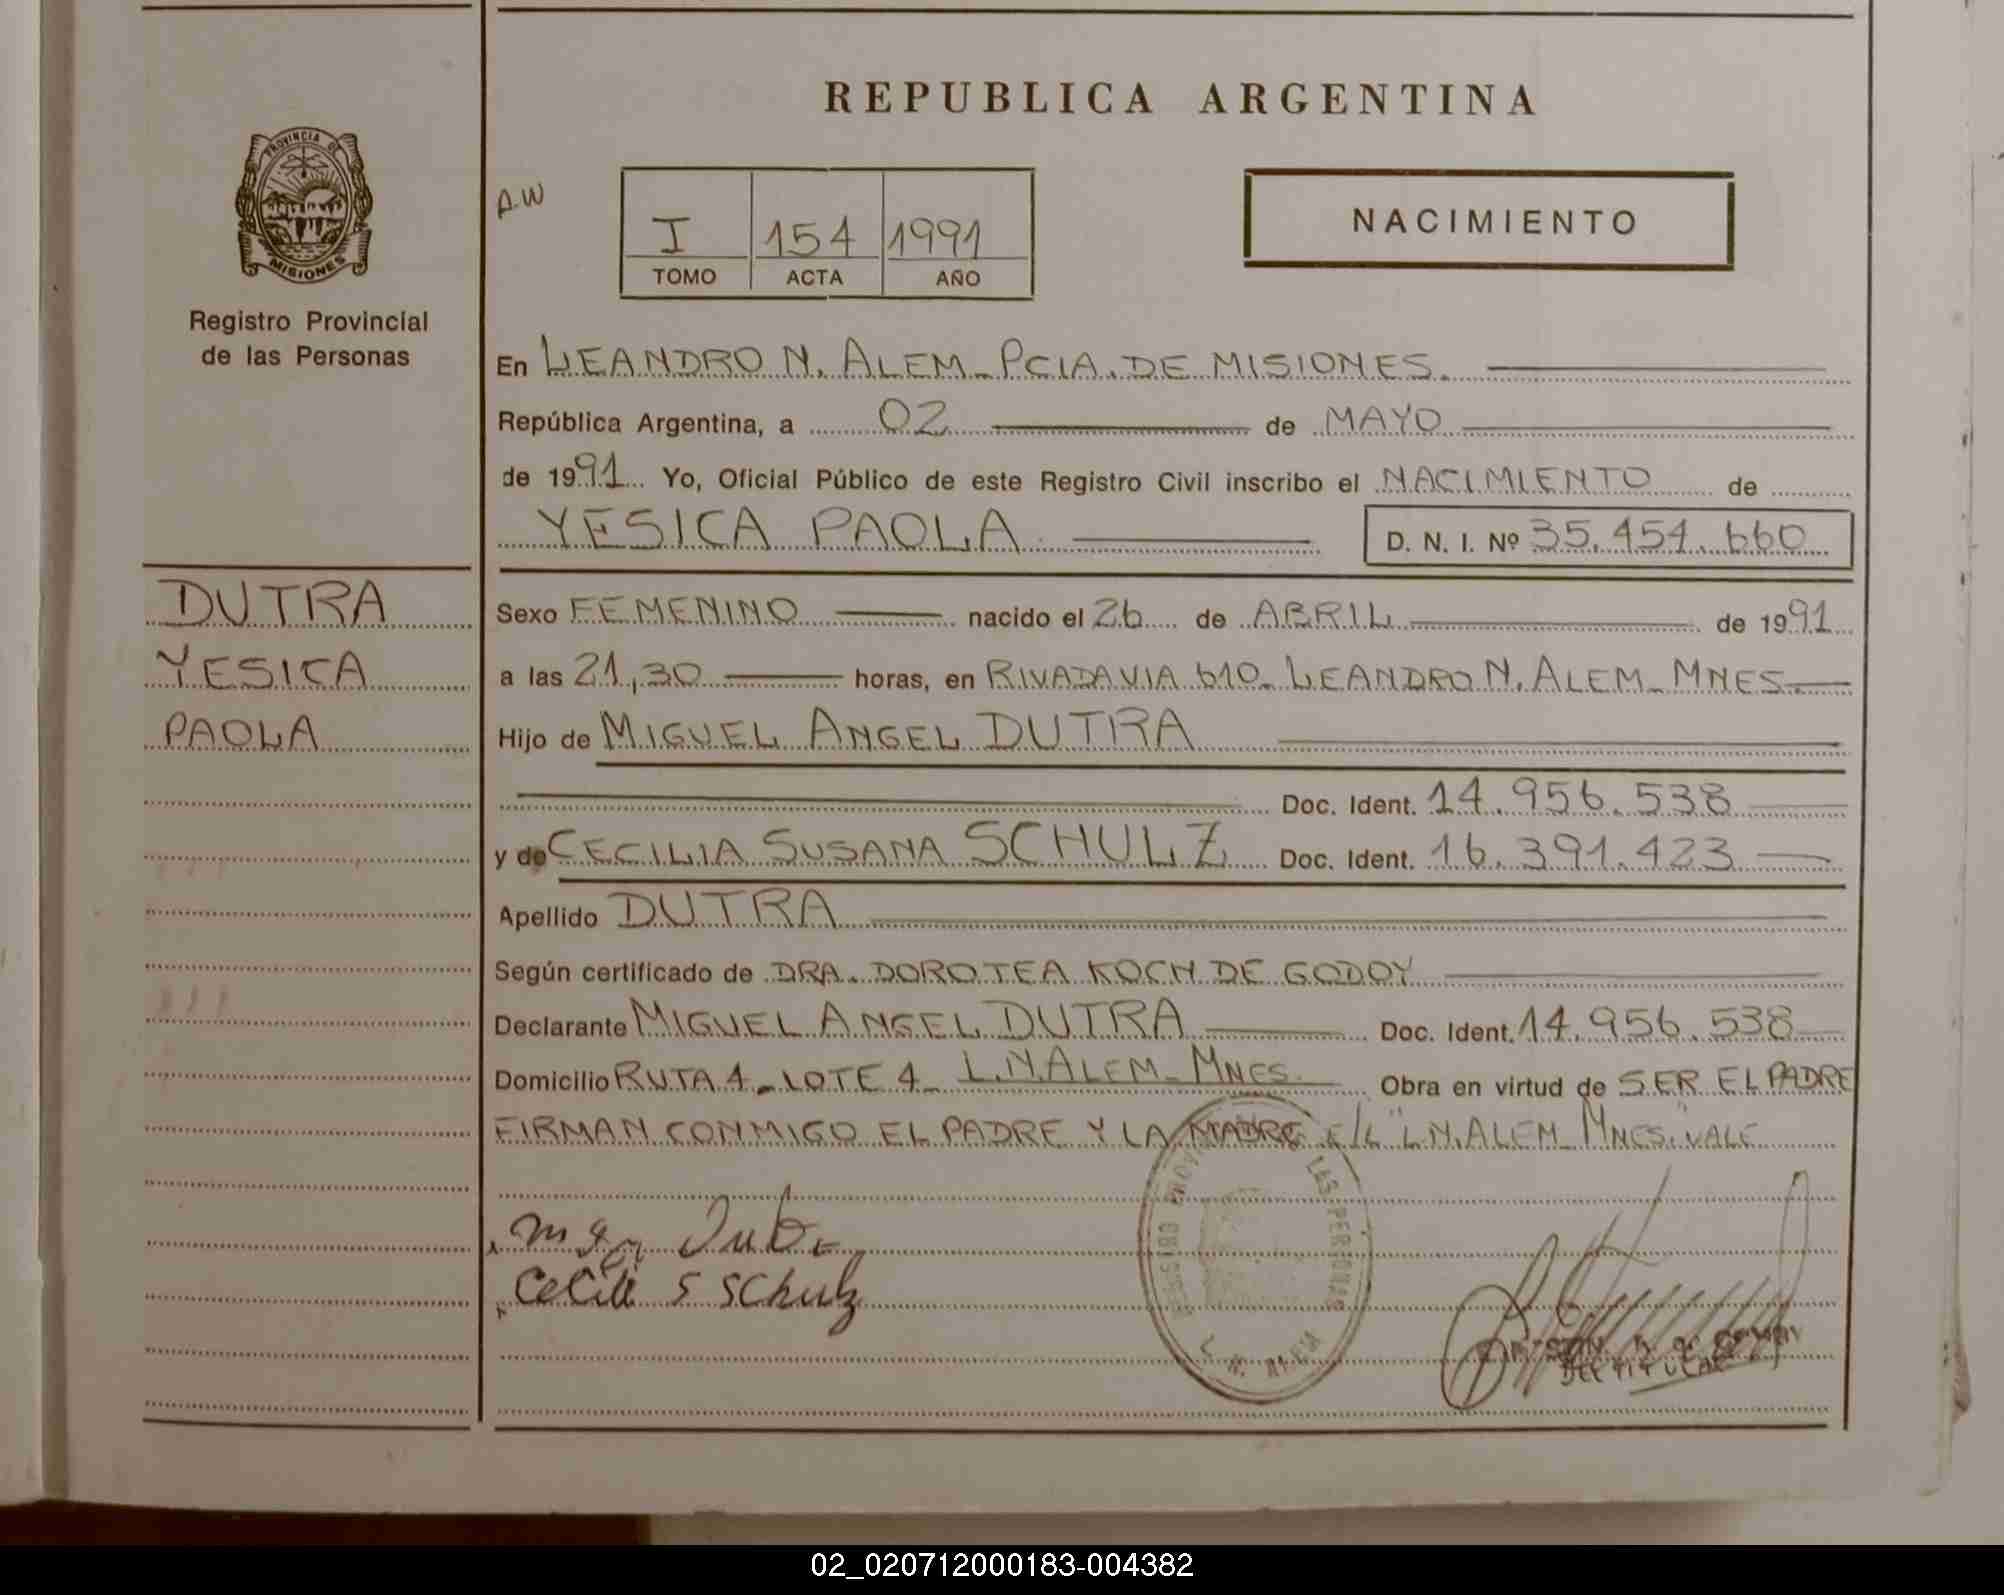 REPUBLICA ARGENTINA
PROVINCIA DE
MISIONES
Registro Provincial
de las Personas
AW
I 154 1991
TOMO ACTA AÑO
NACIMIENTO
En LEANDRO N. ALEM - PCIA. DE MISIONES.
República Argentina, a 02 de MAYO
de 1991 Yo, Oficial Público de este Registro Civil inscribo el NACIMIENTO de
YESICA PAOLA D. N. I. Nº 35.454.660
DUTRA
YESICA
PAOLA
Sexo FEMENINO nacido el 26 de ABRIL de 1991
a las 21,30 horas, en RIVADAVIA 610 - LEANDRO N. ALEM - MNES.
Hijo de MIGUEL ANGEL DUTRA
Doc. Ident. 14.956.538
y de CECILIA SUSANA SCHULZ Doc. Ident. 16.391.423
Apellido DUTRA
Según certificado de DRA. DOROTEA KOCH DE GODOY
Declarante MIGUEL ANGEL DUTRA Doc. Ident. 14.956.538
Domicilio RUTA 4 - LOTE 4 - L.N. ALEM - MNES. Obra en virtud de SER EL PADRE
FIRMAN CONMIGO EL PADRE Y LA MADRE E/L "L.N. ALEM - MNES." VALE
REGISTRO PROV LAS PERSONAS
L. N. ALEM
Cecilia S Schulz
TITULAR
02_020712000183-004382